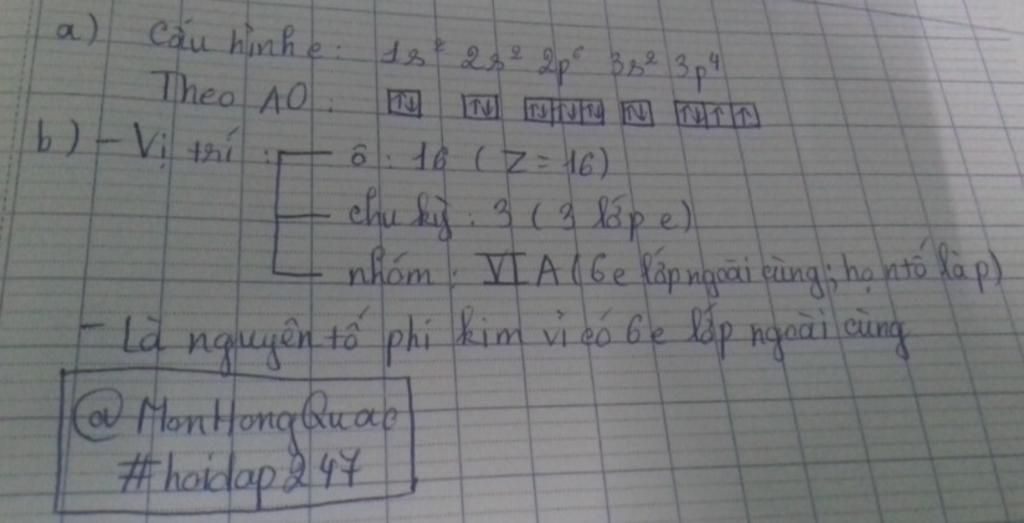 a) Cấu hình e: 1s² 2s² 2p⁶ 3s² 3p⁴
Theo AO: ↑↓ ↑↓ ↑↓ ↑↓ ↑↓ ↑↓ ↑↓ ↑ ↑
b) - Vị trí: ô: 16 (Z = 16)
chu kỳ: 3 (3 lớp e)
nhóm: VIA (6e lớp ngoài cùng; họ ntố là p)
- Là nguyên tố phi kim vì có 6e lớp ngoài cùng
@MonHongQuac
#hoidap247